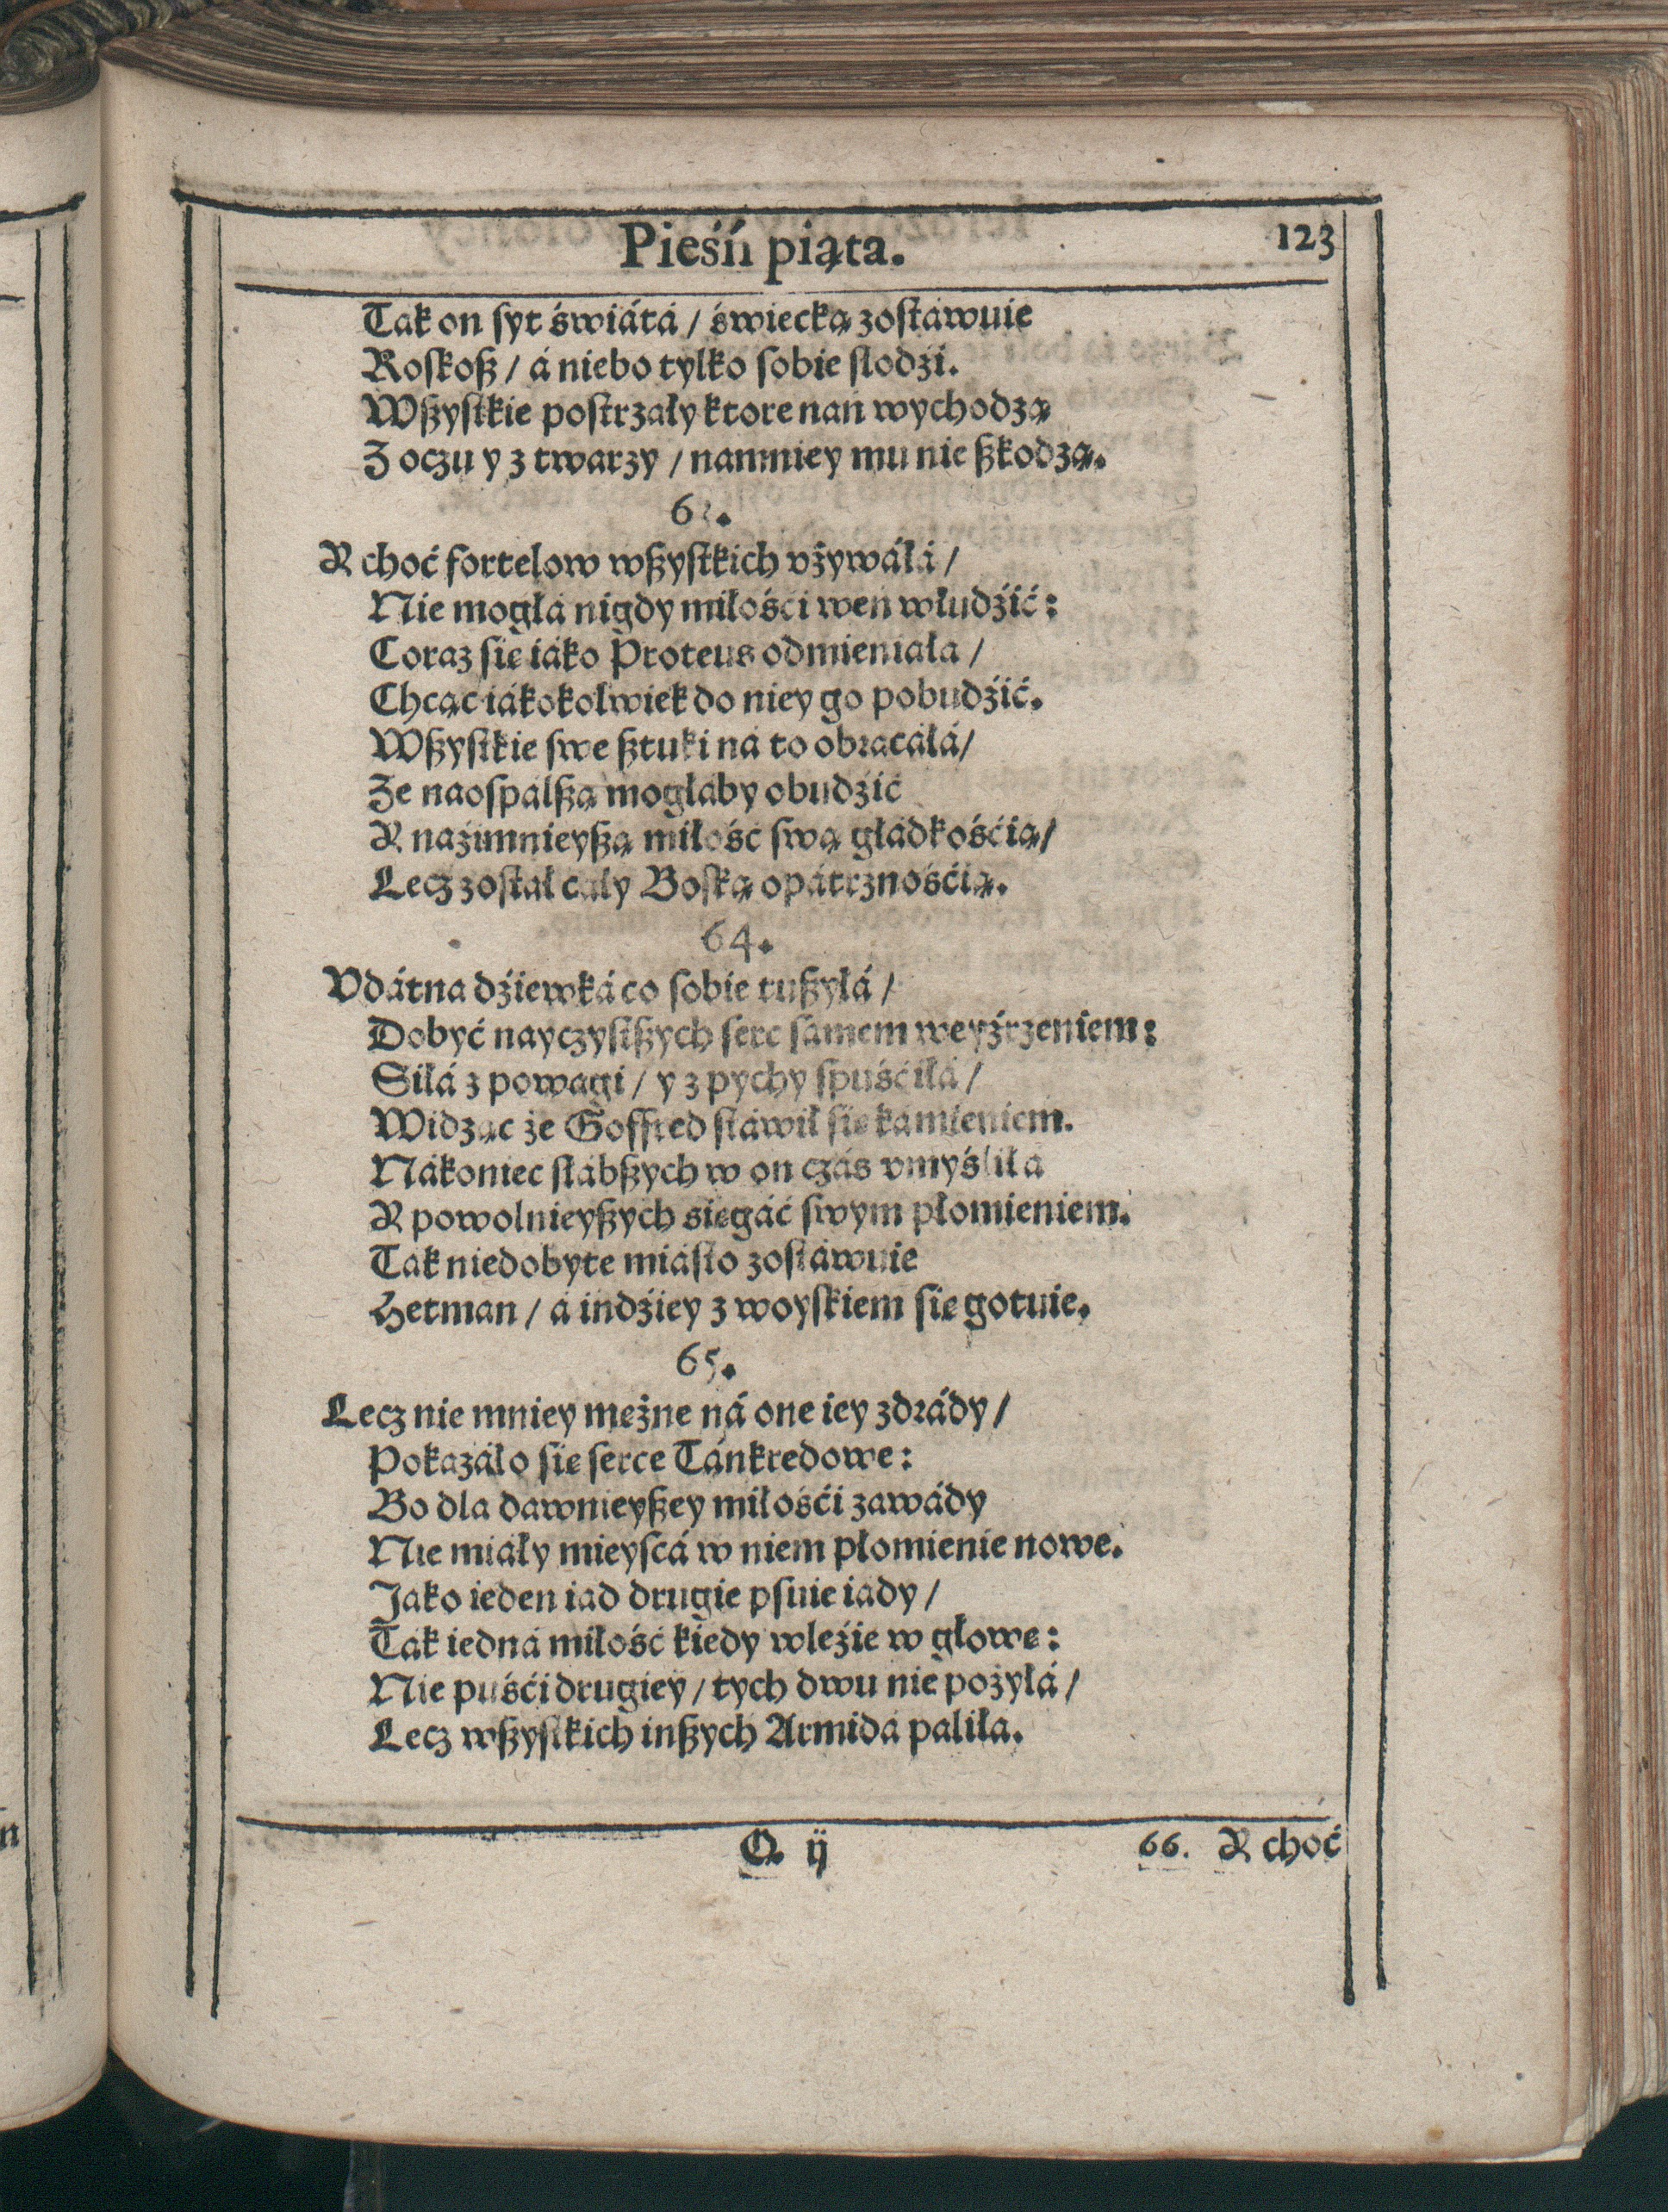 Pieśń piąta.
123
Tak on syt świátá / świecką zostawuie
Roskosz / á niebo tylko sobie slodźi.
Wszystkie postrzały ktore nań wychodzą
Z oczu y z twarzy / namniey mu nie szkodzą.
A choć fortelow wszystkich vżywáłá /
Nie mogłá nigdy miłości weń włudźić:
Coraz się iáko Proteus odmieniała /
Chcąc iákokolwiek do niey go pobudźić.
Wszystkie swe sztuki ná to obracáłá /
Że naospalszą mogłaby obudźić
A naźimnieyszą miłość swą gładkośćią /
Lecz został cały Boską opátrznośćią.
64.
Vdátna dźiewká co sobie tuszyłá /
Dobyć nayczystszych serc samem weyźrzeniem:
Siłá z powagi / y z pychy spuśćiłá /
Widząc że Goffred stáwił się kámieniem.
Nákoniec słábszych w on czás vmyśliła
A powolnieyszych sięgáć swym płomieniem.
Tak niedobyte miásto zostáwuie
Hetman / á indźiey z woyskiem się gotuie.
65.
Lecz nie mniey mężne ná one iey zdrády /
Pokazáło się serce Tánkredowe:
Bo dla dawnieyszey miłośći zawády
Nie miáły mieyscá w niem płomienie nowe.
Jako ieden iad drugie psuie iady /
Ták iedná miłość kiedy wleźie w głowę:
Nie puśći drugiey / tych dwu nie pożyłá /
Lecz wszystkich inszych Armidá paliła.
Q ij
66. A choć